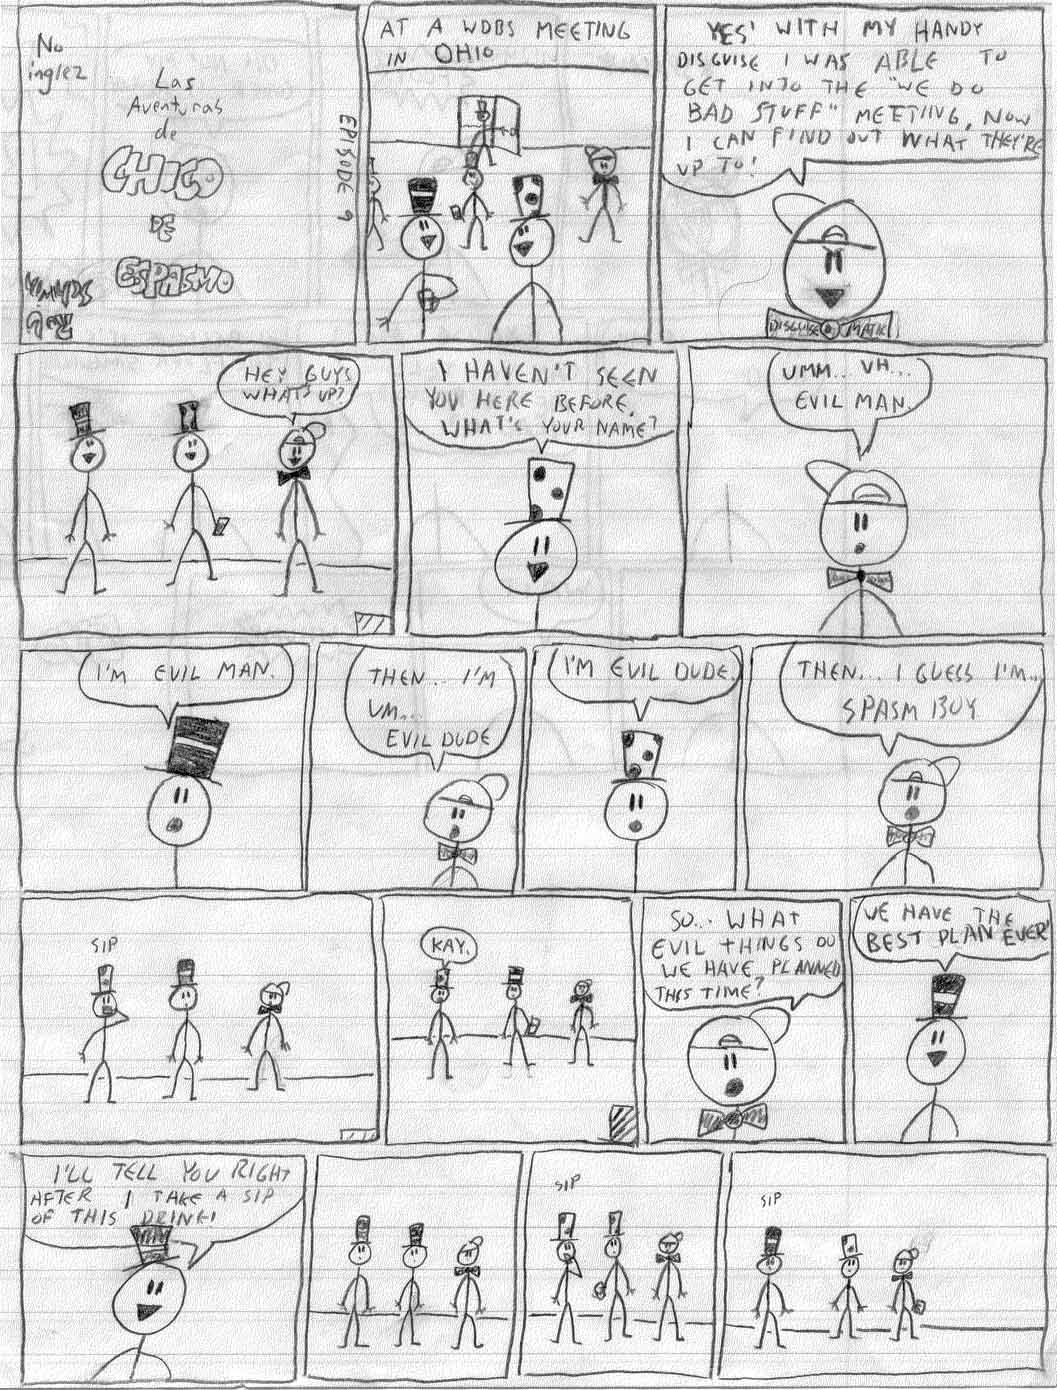 No
inglez
Las
Aventuras
de
CHICO
DE
ESPASMO
EPISODE 9
AT A WDBS MEETING
IN OHIO
YES' WITH MY HANDY
DISGUISE I WAS ABLE TO
GET INTO THE "WE DO
BAD STUFF" MEETING, NOW
I CAN FIND OUT WHAT THEY'RE
UP TO!
DISGUISE MATIC
HEY GUYS
WHAT'S UP?
I HAVEN'T SEEN
YOU HERE BEFORE.
WHAT'S YOUR NAME?
UMM.. UH...
EVIL MAN.
I'M EVIL MAN.
THEN... I'M
UM...
EVIL DUDE
I'M EVIL DUDE.
THEN... I GUESS I'M...
SPASM BOY
SIP
KAY.
SO.. WHAT
EVIL THINGS DO
WE HAVE PLANNED
THIS TIME?
WE HAVE THE
BEST PLAN EVER!
I'LL TELL YOU RIGHT
AFTER I TAKE A SIP
OF THIS DRINK!
SIP
SIP